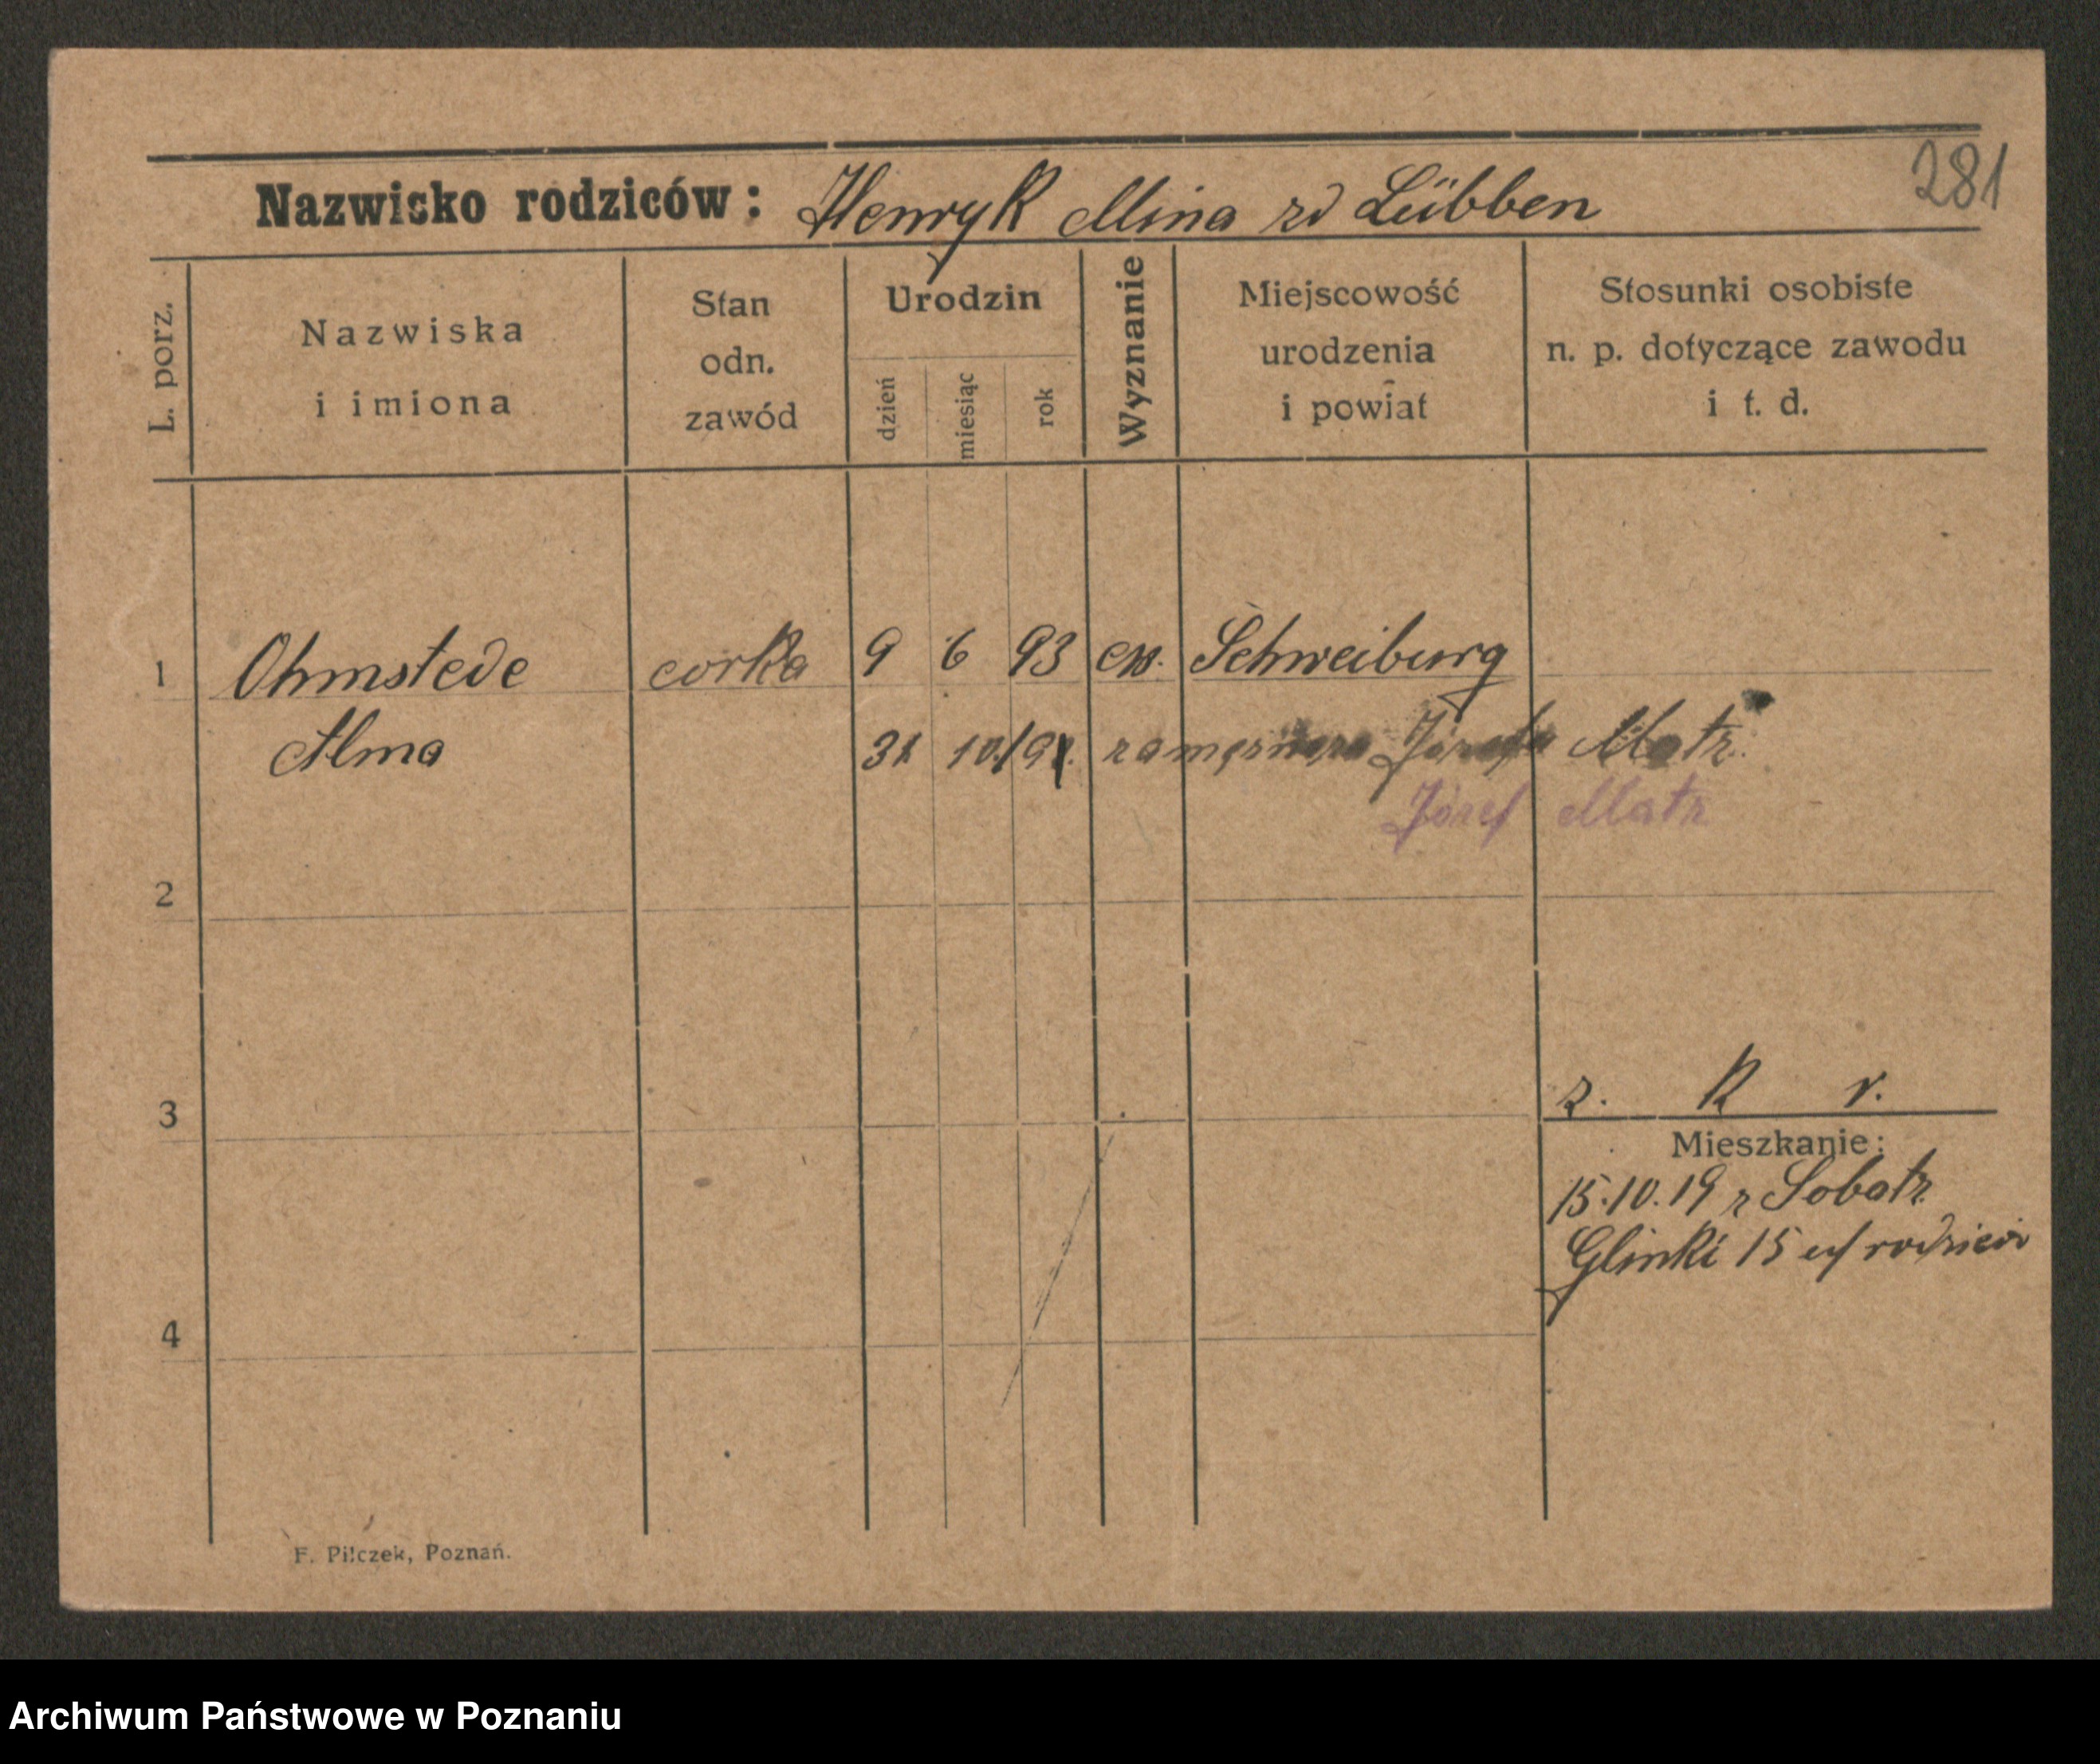 281
Nazwisko rodziców: Henryk Mina zd Lübben
L. porz.
Nazwiska
i imiona
Stan
odn.
zawód
Urodzin
dzień
miesiąc
rok
Wyznanie
Miejscowość
urodzenia
i powiat
Stosunki osobiste
n. p. dotyczące zawodu
i t. d.
1 Ohmstede corka 9 6 93 ew. Schweiburg
Alma 31 10/19 zamężna Józef Matz
Józef Matz
2
3
z. k r.
Mieszkanie:
15.10.19 z Sobotz
Glinki 15 u/ rodziców
4
F. Pilczek, Poznań.
Archiwum Państwowe w Poznaniu